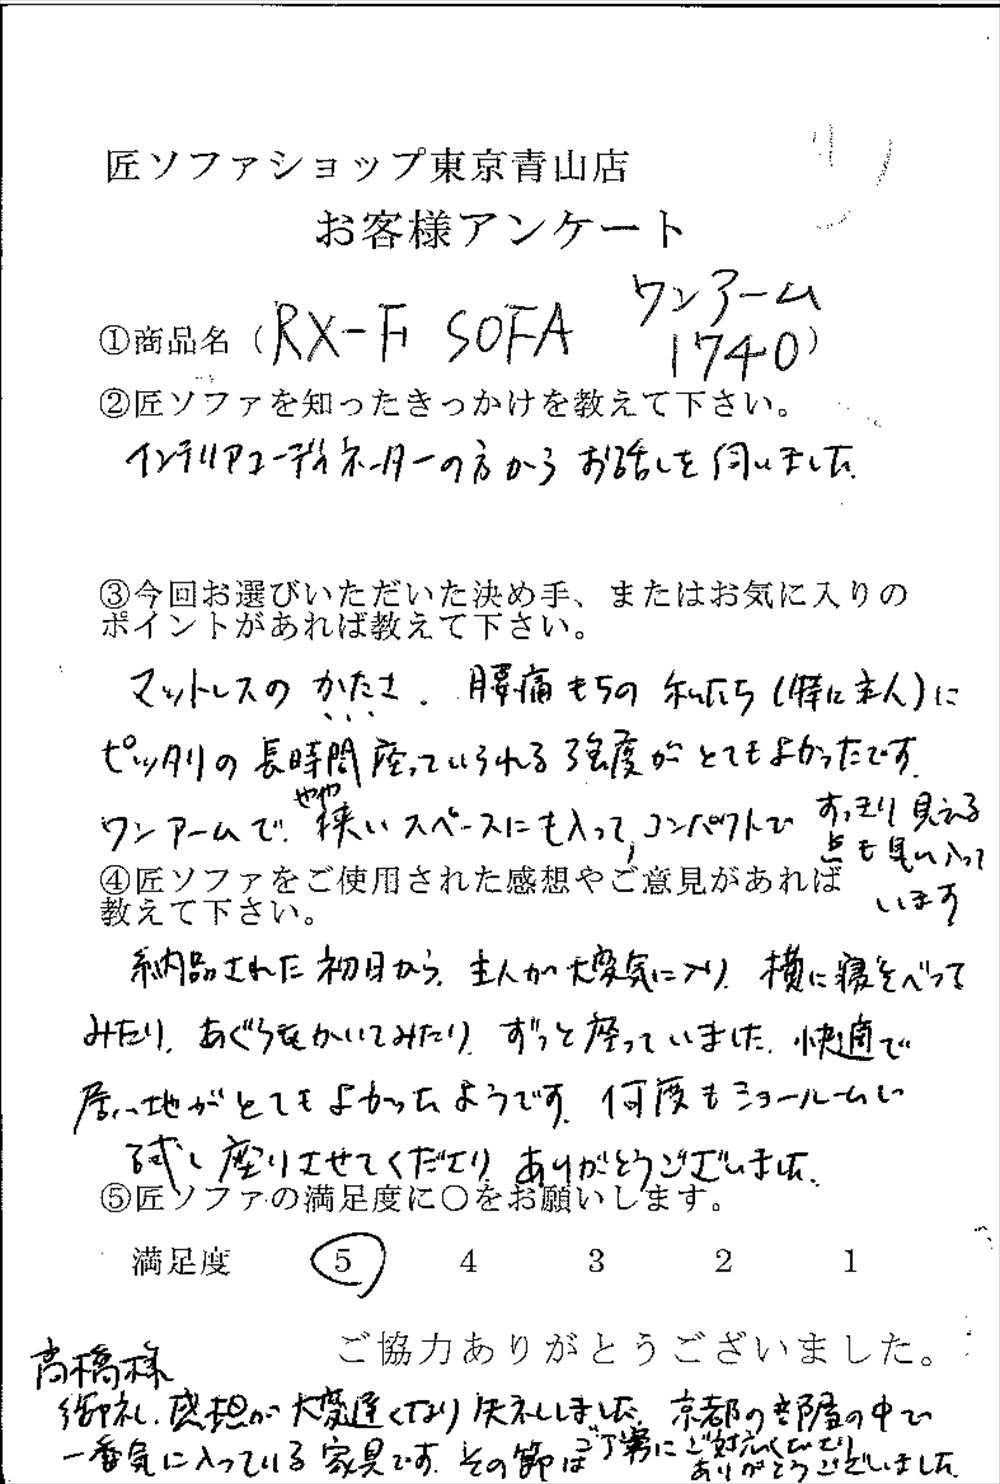 匠ソファショップ東京青山店
お客様アンケート
①商品名（RX-F SOFA ワンアーム 1740）
②匠ソファを知ったきっかけを教えて下さい。
インテリアコーディネーターの方からお話しを伺いました。
③今回お選びいただいた決め手、またはお気に入りの
ポイントがあれば教えて下さい。
マットレスのかたさ。腰痛もちの私たち(特に主人)に
ピッタリの長時間座っていられる強度がとてもよかったです。
ワンアームで、やや狭いスペースにも入って、コンパクトですっきり見える
点も気に入って
います
④匠ソファをご使用された感想やご意見があれば
教えて下さい。
納品された初日から、主人が大変気に入り、横に寝そべって
みたり、あぐらをかいてみたり、ずっと座っていました。快適で
居心地がとてもよかったようです。何度もショールームで
試し座りさせてくださり、ありがとうございました。
⑤匠ソファの満足度に○をお願いします。
満足度 5 4 3 2 1
ご協力ありがとうございました。
高橋様
御礼、感想が大変遅くなり失礼しました。京都の部屋の中で
一番気に入っている家具です。その節はご丁寧にご対応くださり
ありがとうございました。